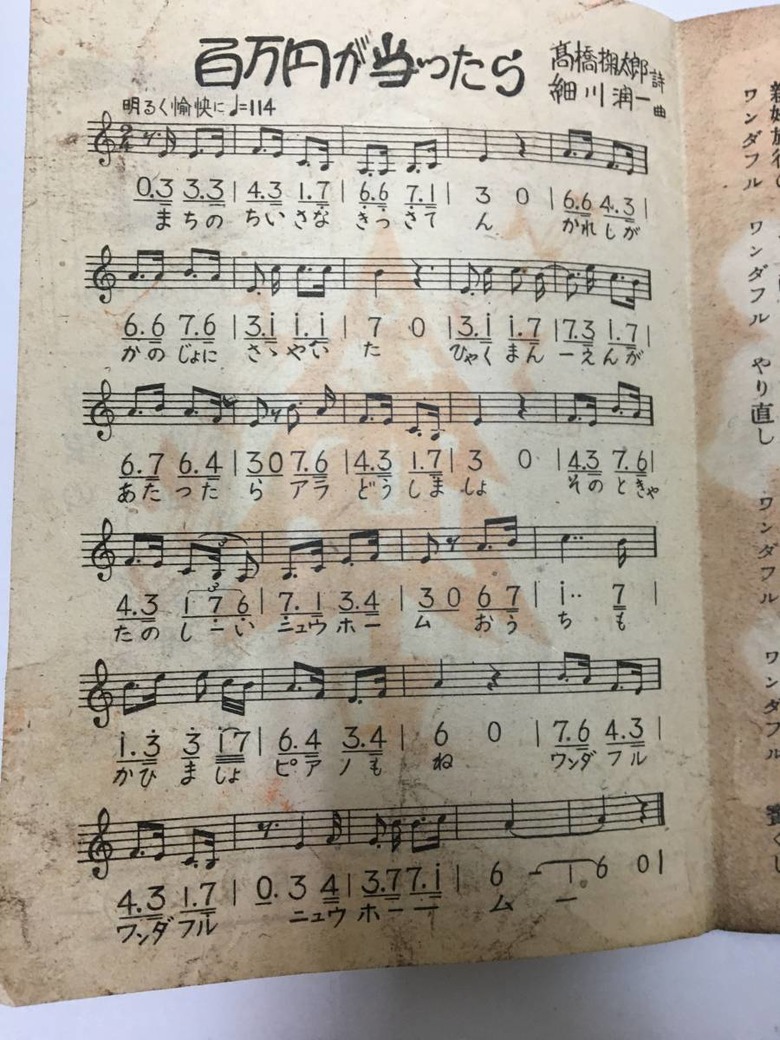 百万円が当ったら
髙橋掬太郎 詩
細川潤一 曲
明るく愉快に ♩=114
0.3 3.3 | 4.3 1.7 | 6.6 7.1 | 3 0 | 6.6 4.3 |
まちの ちいさな きっさて ん かれしが
6.6 7.6 | 3.i i.i | 7 0 | 3.i i.7 | 7.3 1.7 |
かの じょに さゝやい た ひゃくまん ーえんが
6.7 6.4 | 30 7.6 | 4.3 1.7 | 3 0 | 4.3 7.6 |
あたった ら アラ どうしま しょ そのときゃ
4.3 1 7 6 | 7.1 3.4 | 3 0 6 7 | i.. 7 |
たの しーい ニュウホー ム おう ち も
i.3 3 i7 | 6.4 3.4 | 6 0 | 7.6 4.3 |
かひ ましょ ピアノも ね ワンダフル
4.3 1.7 | 0. 3 4 | 3.7 7.i | 6 - | 6 0 |
ワンダフル ニュウ ホーー ム ー
ワンダフル ワンダフル やり直し ワンダフル ワンダフル